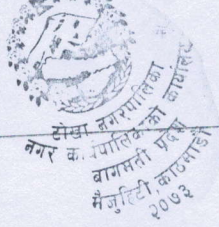 टोखा नगरपालिका
नगर कार्यपालिकाको कार्यालय
बागमती प्रदेश
मैजुहिटी, काठमाडौं
२०७३